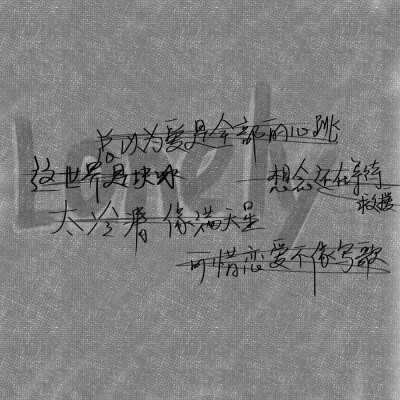 Lonely
总以为爱是全部的心跳
这世界是块冰 想念还在等待
救援
太冷清 像满天星
可惜恋爱不像写歌